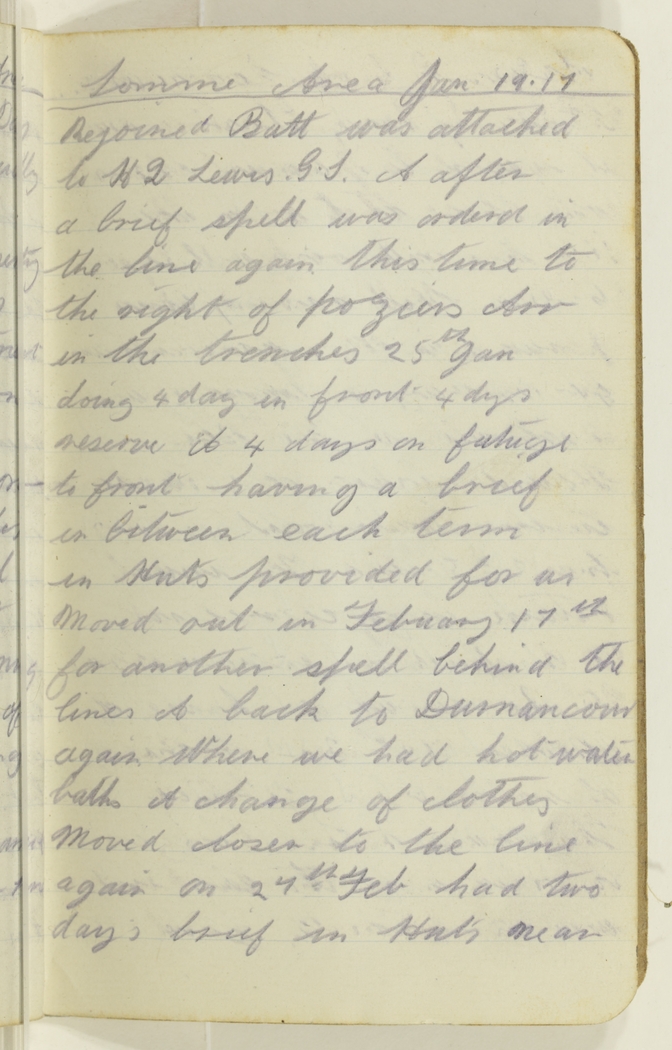 Somme Area Jan 19.17
Rejoined Batt was attached
to H Q Lewis. G.S. & after
a brief spell was orderd in
the line again this time to
the right of poziers Arr
in the trenches 25th Jan
doing 4 day in front 4 dys
reserve & 4 days on fatuige
to front having a brief
in bitween each term
in Huts provided for us
Moved out in Febuary 17th
for another spell behind the
lines & back to Durnancour
again Where we had hot water
baths & change of clothes
Moved closer to the line
again on 24th Feb had two
days brief in Huts near